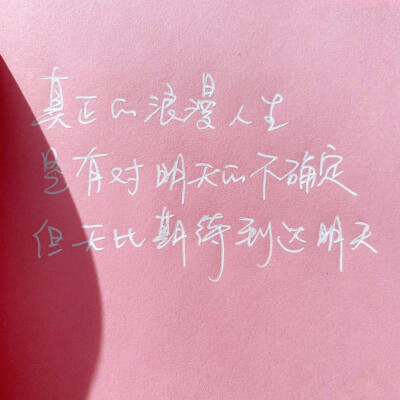 真正的浪漫人生
是有对明天的不确定
但无比期待到达明天